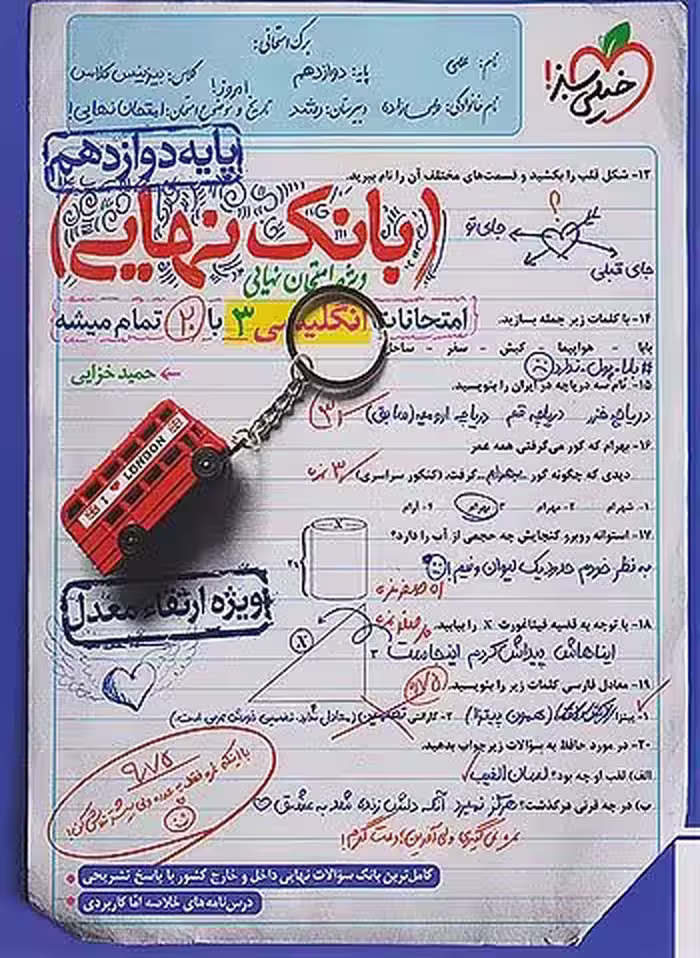 خیلی سبز!
برگ امتحانی:
نام: علی
پایه: دوازدهم
کلاس: بیزینس کلاس
نام خانوادگی:
دبیرستان: رشد
تاریخ و موضوع امتحان: امتحان نهایی! امروز!
پایه دوازدهم
(بانک نهایی)
ویژه امتحان نهایی
امتحانات انگلیسی ۳ با ۲۰ تمام میشه
حمید خزایی
LONDON
ویژه ارتقاء معدل
۱۳- شکل قلب را بکشید و قسمت‌های مختلف آن را نام ببرید.
جای تو
؟
جای قبلی
۱۴- با کلمات زیر جمله بسازید.
بابا - هواپیما - کیش - سفر -
#بابا_پول_ندارد
۱۵- نام سه دریاچه در ایران را بنویسید.
دریاچه خزر دریاچه قم دریاچه ارومیه (سابق)
۱۶- بهرام که گور می‌گرفتی همه عمر
دیدی که چگونه گور بهرام گرفت. (کنکور سراسری)
۱- شهرام ۲- مهرام ۳- بهرام ۴- آرام
۱۷- استوانه روبرو گنجایش چه حجمی از آب را دارد؟
به نظر خودم حدود یک لیوان و نیم!
۱۸- با توجه به قضیه فیثاغورث X را بیابید.
X
۳
ایناهاش پیداش کردم اینجاست
۱۹- معادل فارسی کلمات زیر را بنویسید.
۹/۷۵
۱- پیتزا (همون پیتزا) ۲- گارانتی تضمین
۲۰- در مورد حافظ به سؤالات زیر جواب بدهید.
الف) لقب او چه بود؟ لسان الغیب
ب) در چه قرنی درگذشت؟ هرگز نمیرد آنکه دلش زنده شد به عشق
۹/۷۵
کامل‌ترین بانک سؤالات نهایی داخل و خارج کشور با پاسخ تشریحی
درس‌نامه‌های خلاصه اما کاربردی